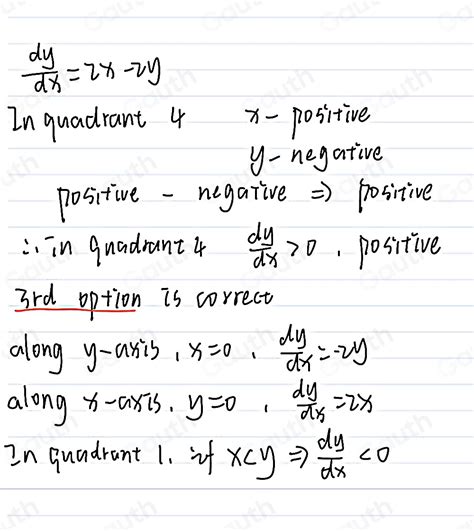 dy/dx = 2x - 2y
In quadrant 4 x - positive
y - negative
positive - negative ⇒ positive
∴ in quadrant 4 dy/dx > 0 , positive
3rd option is correct
along y-axis , x=0 , dy/dx = -2y
along x-axis , y=0 , dy/dx = 2x
In quadrant 1. if x<y ⇒ dy/dx < 0